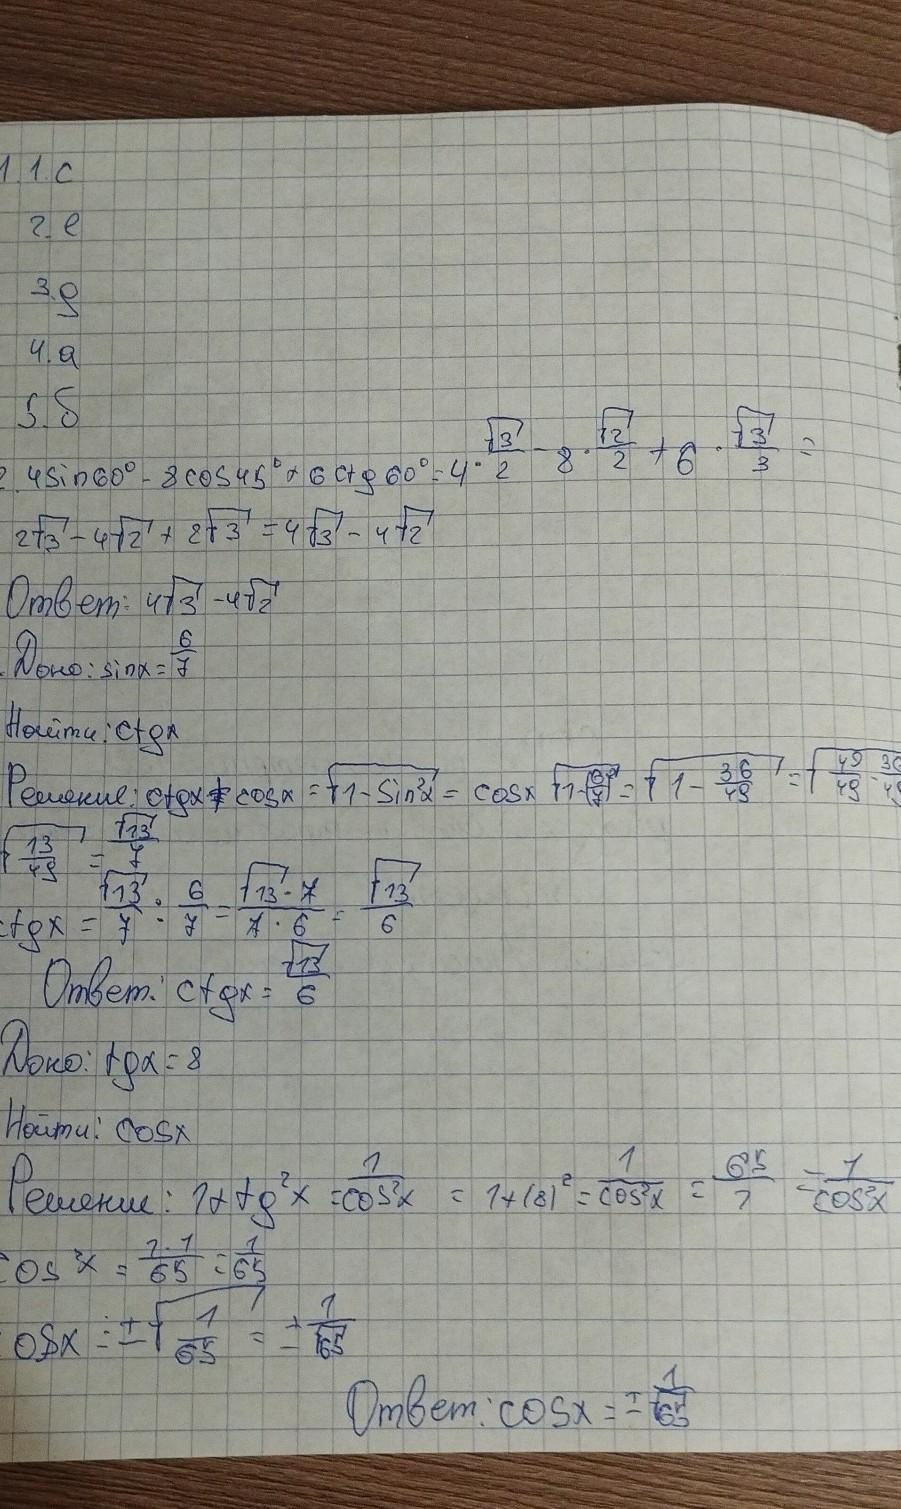 1. 1. с
2. е
3. g
4. а
5. б
2. 4sin60° - 8cos45° + 6ctg60° = 4 · √3/2 - 8 · √2/2 + 6 · √3/3 =
2√3 - 4√2 + 2√3 = 4√3 - 4√2
Ответ: 4√3 - 4√2
Дано: sinx = 6/7
Найти: ctgx
Решение: ctgx cosx = √(1 - sin²x) = cosx √(1-(6/7)²) = √(1 - 36/49) = √(49/49 - 36/49
√(13/49) = √13/7
ctgx = √13/7 : 6/7 = √13 · 7/7 · 6 = √13/6
Ответ: ctgx = √13/6
Дано: tgx = 8
Найти: cosx
Решение: 1 + tg²x = 1/cos²x = 1+(8)² = 1/cos²x = 65/1 = 1/cos²x
cos²x = 1·1/65 = 1/65
cosx = ±√(1/65) = ±1/√65
Ответ: cosx = ±1/√65